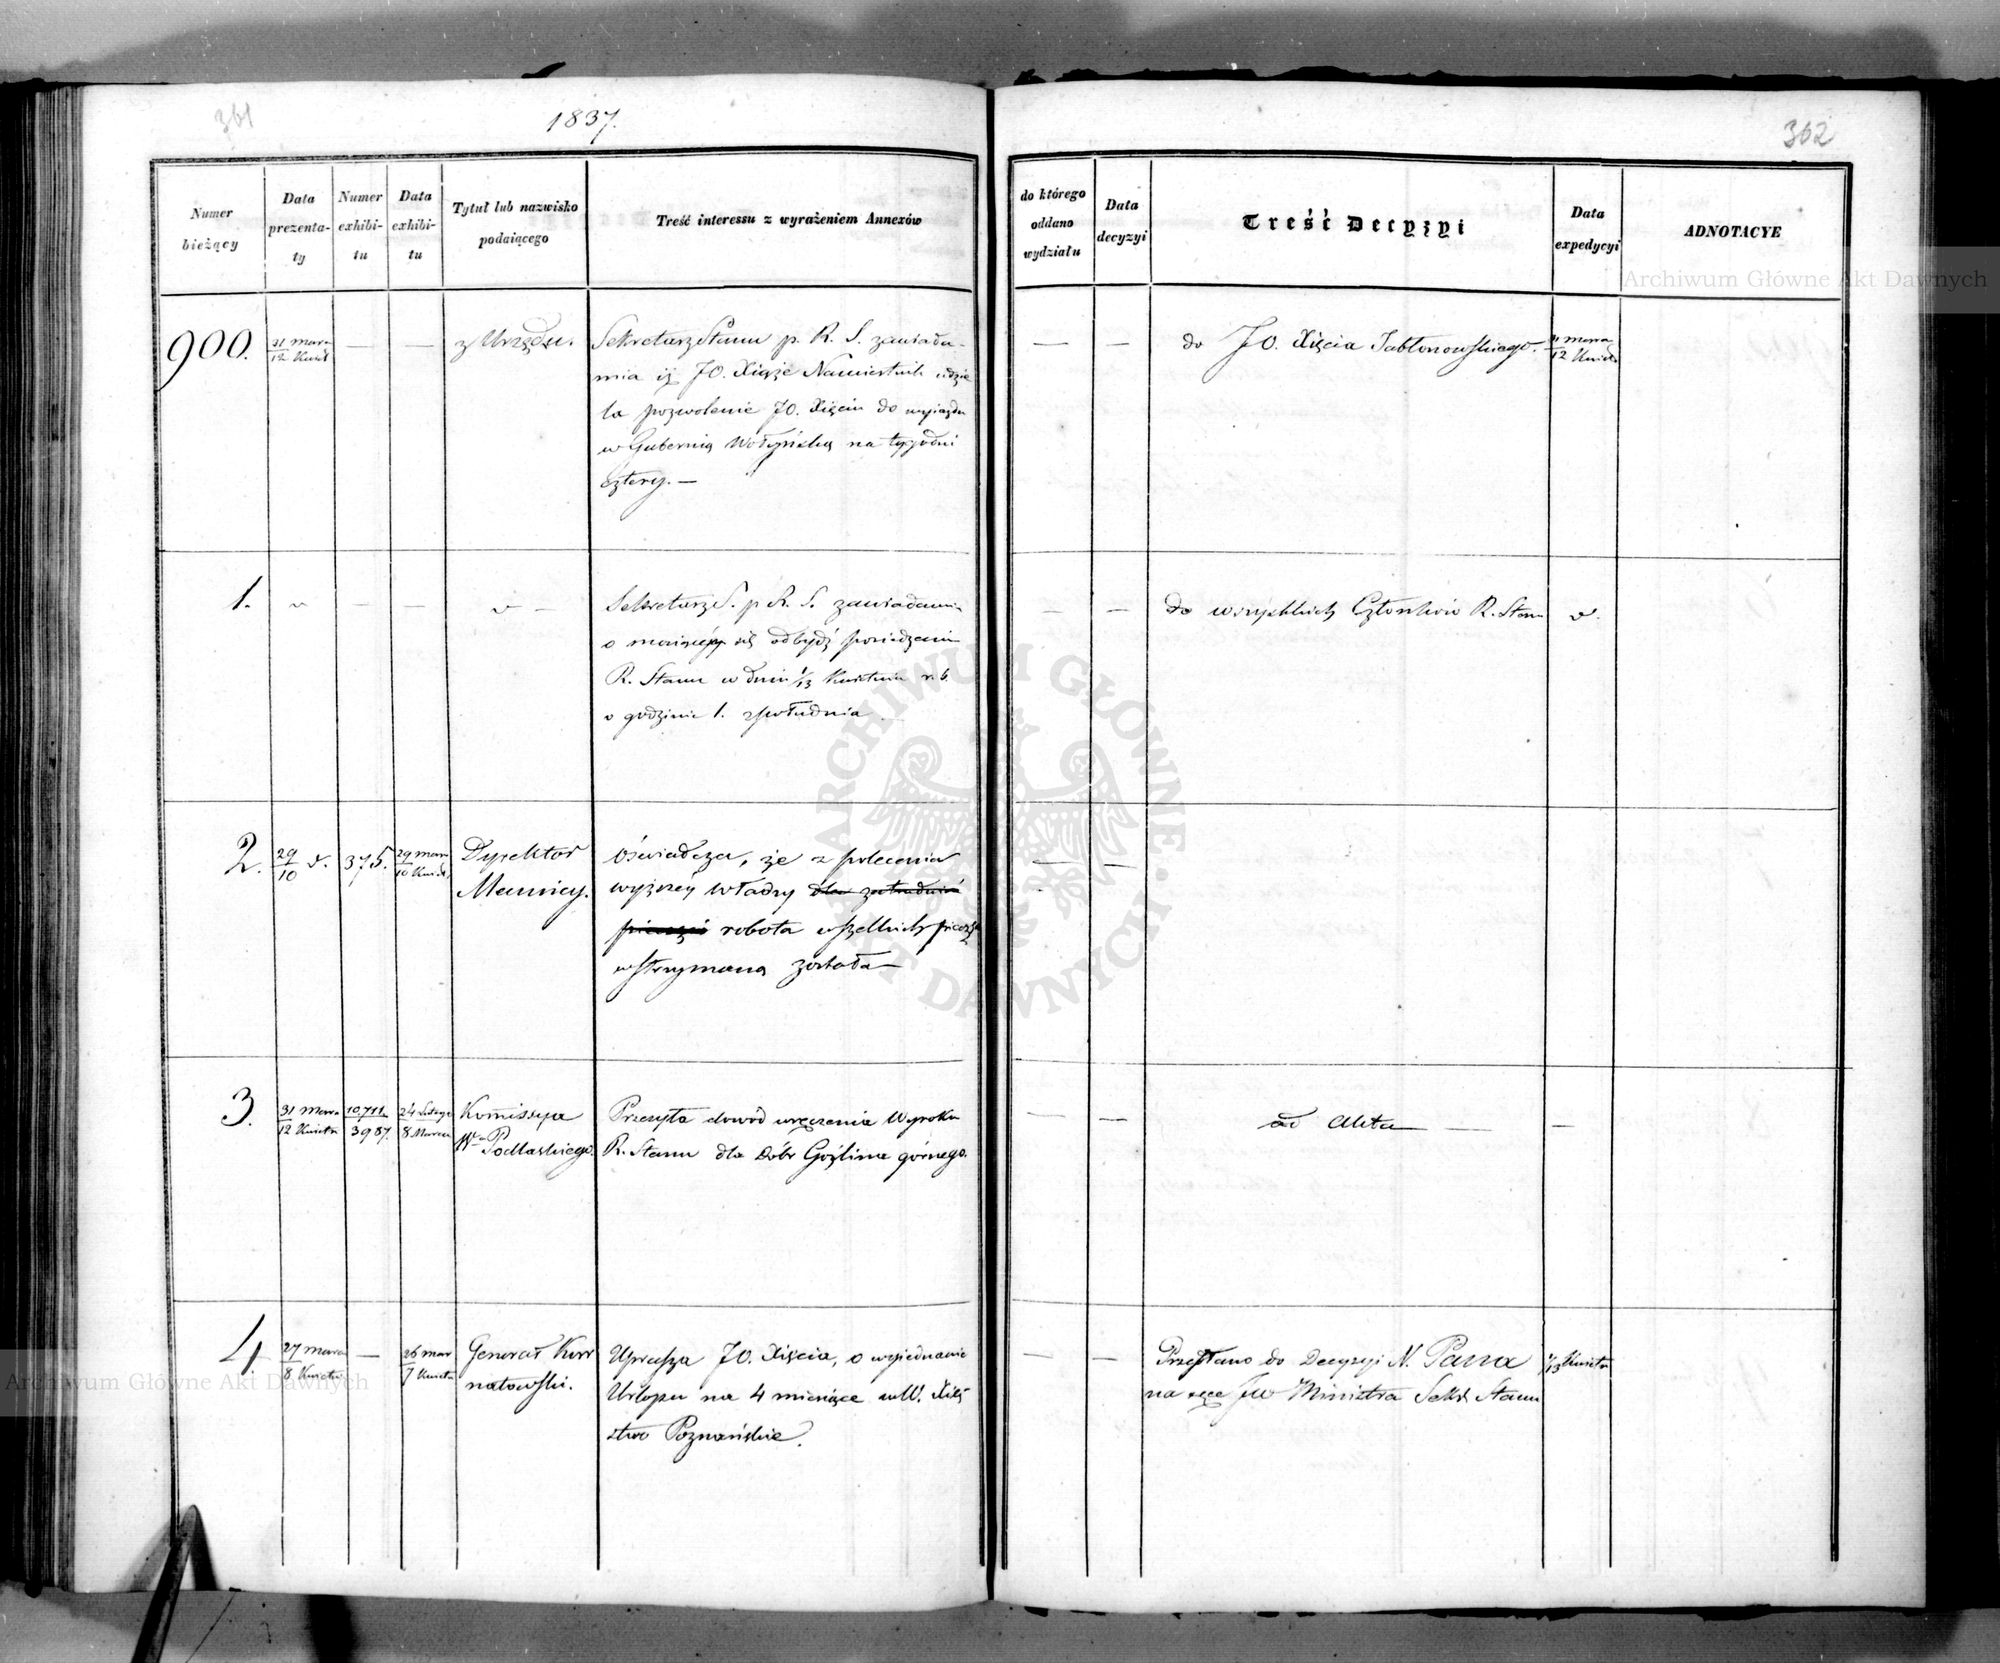 361
1837.
362
Numer bieżący
Data prezenta-ty
Numer exhibi-tu
Data exhibi-tu
Tytuł lub nazwisko podaiącego
Treść interessu z wyrażeniem Annexów
do którego oddano wydziału
Data decyzyi
Treść Decyzyi
Data expedycyi
ADNOTACYE
Archiwum Główne Akt Dawnych
900.
31 Marca
12 Kwiet
— —
z Urzędu.
Sekretarz Stanu p. R. S. zawiada-
mia iż JO. Xiąże Namiestnik udzie
la pozwolenie JO. Xięciu do wyiazdu
w Gubernią Wołyńską na tygodni
cztery. —
— —
do JO. Xięcia Jabłonowskiego.
31 Marca
12 Kwiet
1.
" — — " —
Sekretarz S. p R. S. zawiadamia
o maiącym się odbydź posiedzeniu
R. Stanu w dniu 1/13 Kwietnia r. b.
o godzinie 1. z południa
— —
do wszystkich Członków R. Stanu
".
2.
29
10 ".
375.
29 Mar
10 Kwiet
Dyrektor
Mennicy.
Oświadcza, że z polecenia
wyższey Władzy dla zatrudnień
pieczęci robota wszelkich pieczęci
wstrzymaną została —
— —
3.
31 Marca
12 Kwiet
10711
3987.
24 Lutego
8 Marca
Kommissya
Wa Podlaskiego.
Przesyła dowód wręczenia Wyroku
R. Stanu dla Dóbr Goźlina górnego.
— —
ad Akta — — —
4
27 Marca
8 Kwiet
—
26 mar
7 Kwiet
Generał Kor
natowski.
Uprasza JO. Xięcia, o wyiednanie
Urlopu na 4 miesiące w W. Xię
stwo Poznańskie.
— —
Przesłano do Decyzyi N. Pana
na ręce JW Ministra Sekr. Stanu
1/13 Kwiet
Archiwum Główne Akt Dawnych
ARCHIWUM GŁÓWNE AKT DAWNYCH